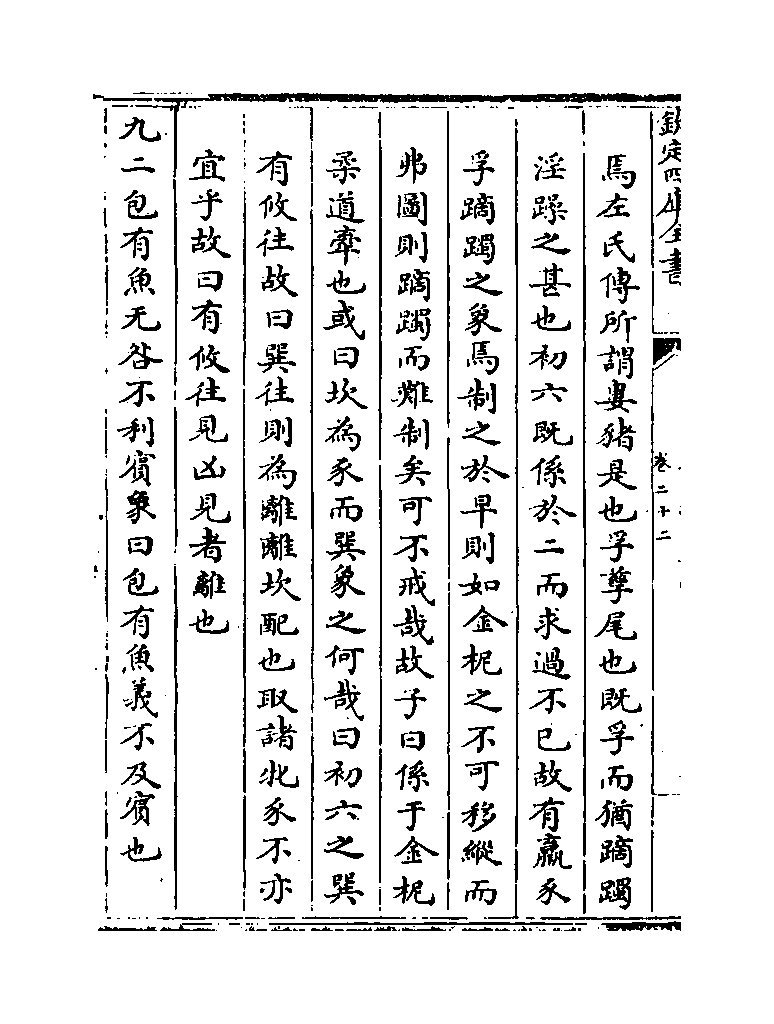 欽定四庫全書
卷二十二
焉左氏傳所謂婁豬是也孚孽尾也既孚而猶蹢躅
淫躁之甚也初六既係於二而求過不已故有羸豕
孚蹢躅之象焉制之於早則如金柅之不可移縱而
弗圖則蹢躅而難制矣可不戒哉故子曰係于金柅
柔道牽也或曰坎為豕而巽象之何哉曰初六之巽
有攸往故曰巽往則為離離坎配也取諸牝豕不亦
宜乎故曰有攸往見凶見者離也
九二包有魚无咎不利賓象曰包有魚義不及賓也